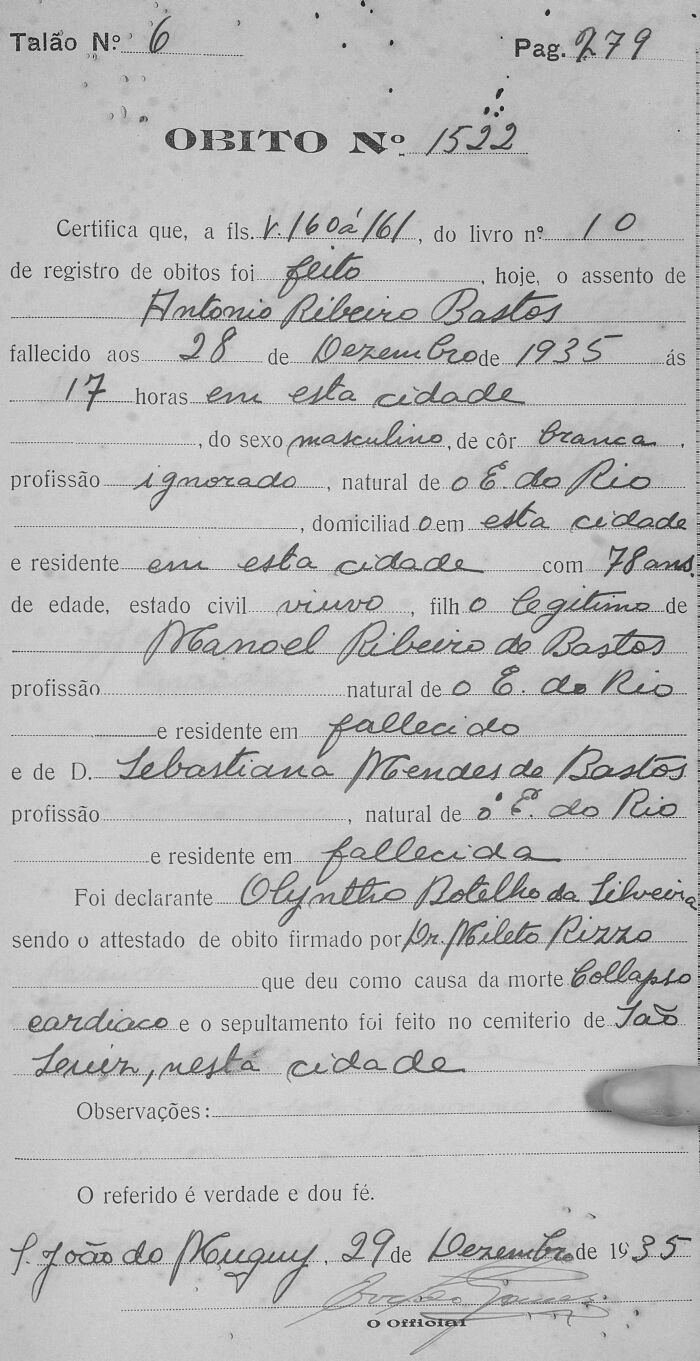 Talão N.º 6 Pag. 279
OBITO Nº 1522
Certifica que, a fls. v. 160 á 161, do livro nº 10
de registro de obitos foi feito, hoje, o assento de
Antonio Ribeiro Bastos
fallecido aos 28 de Dezembro de 1935 ás
17 horas em esta cidade
, do sexo masculino, de côr branca.
profissão ignorado, natural de o E. do Rio
, domiciliado em esta cidade
e residente em esta cidade com 78 ans.
de edade, estado civil viuvo, filho legitimo de
Manoel Ribeiro de Bastos
profissão natural de o E. do Rio
e residente em fallecido
e de D. Sebastiana Mendes de Bastos
profissão , natural de o E. do Rio
e residente em fallecida
Foi declarante Olyntho Botelho da Silveira
sendo o attestado de obito firmado por Dr. Mileto Rizzo
que deu como causa da morte Collapso
cardiaco e o sepultamento foi feito no cemiterio de São
, nesta cidade
Observações:
O referido é verdade e dou fé.
S. João do Muquy, 29 de Dezembro de 1935
O Official